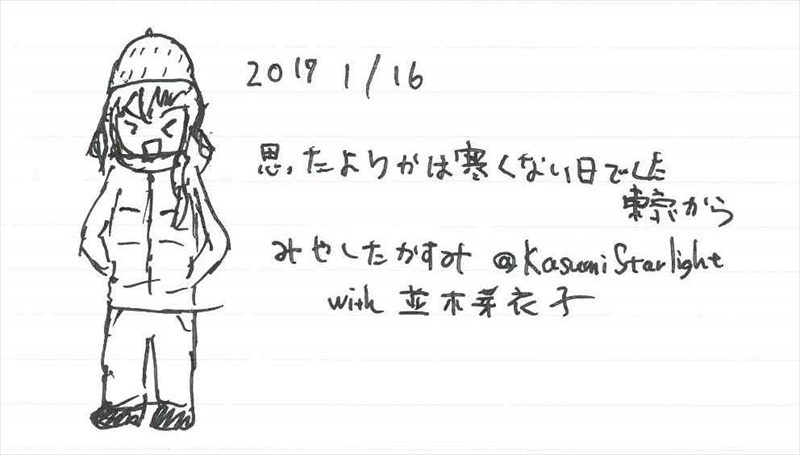 2017 1/16
思ったよりかは寒くない日でした
東京から
みやしたかすみ @KasumiStarlight
with 並木芽衣子